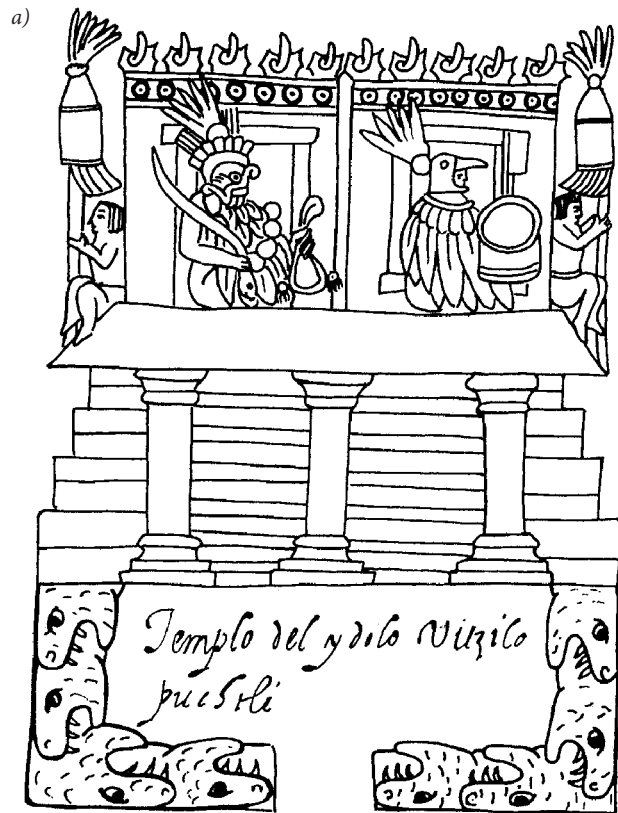 a)
Templo del ydolo Vitzilo
puchtli